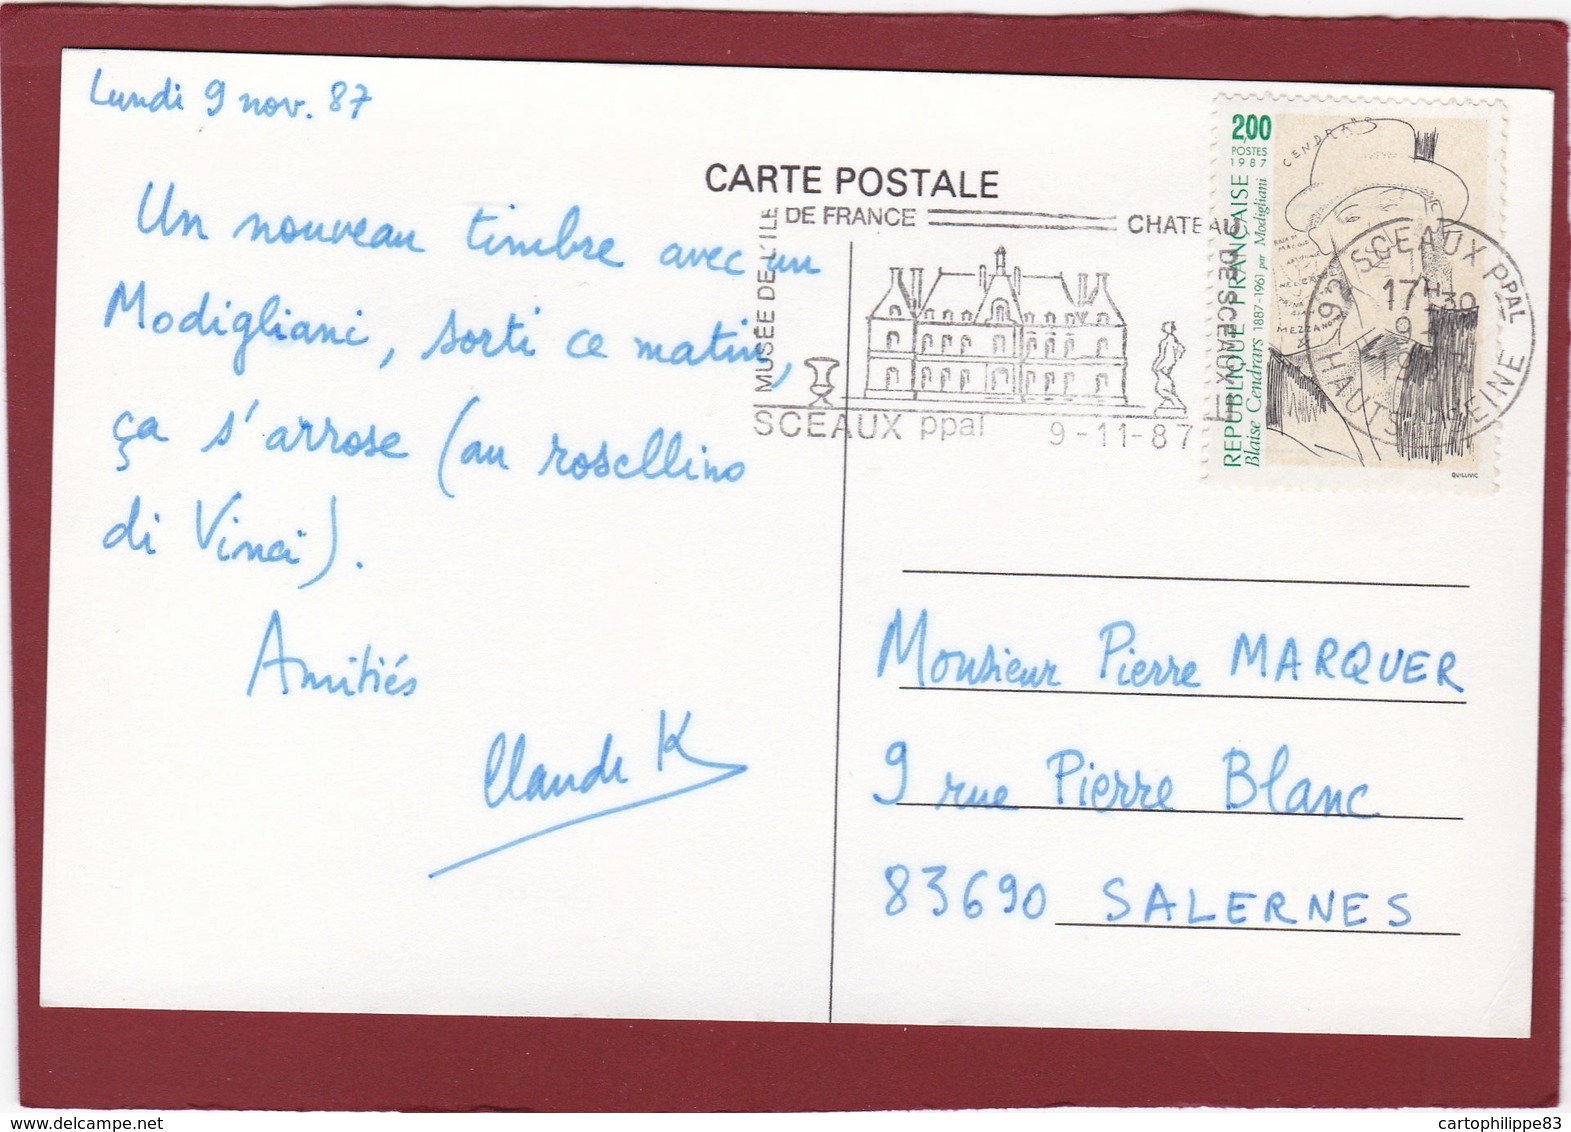 Lundi 9 nov. 87
Un nouveau timbre avec un
Modigliani, sorti ce matin,
ça s'arrose (au rosellino
di Vinci).
Amitiés
Claude K
CARTE POSTALE
MUSÉE DE L'ILE DE FRANCE CHATEAU DE SCEAUX
SCEAUX ppal 9-11-87
2,00
POSTES
1987
REPUBLIQUE FRANÇAISE
Blaise Cendrars 1887-1961 par Modigliani
CENDRARS
MEZZANO
QUILLIVIC
92 SCEAUX PPAL
17H30
9-11
HAUTS DE SEINE
Monsieur Pierre MARQUER
9 rue Pierre Blanc
83690 SALERNES
delcampe.net
cartophilippe83